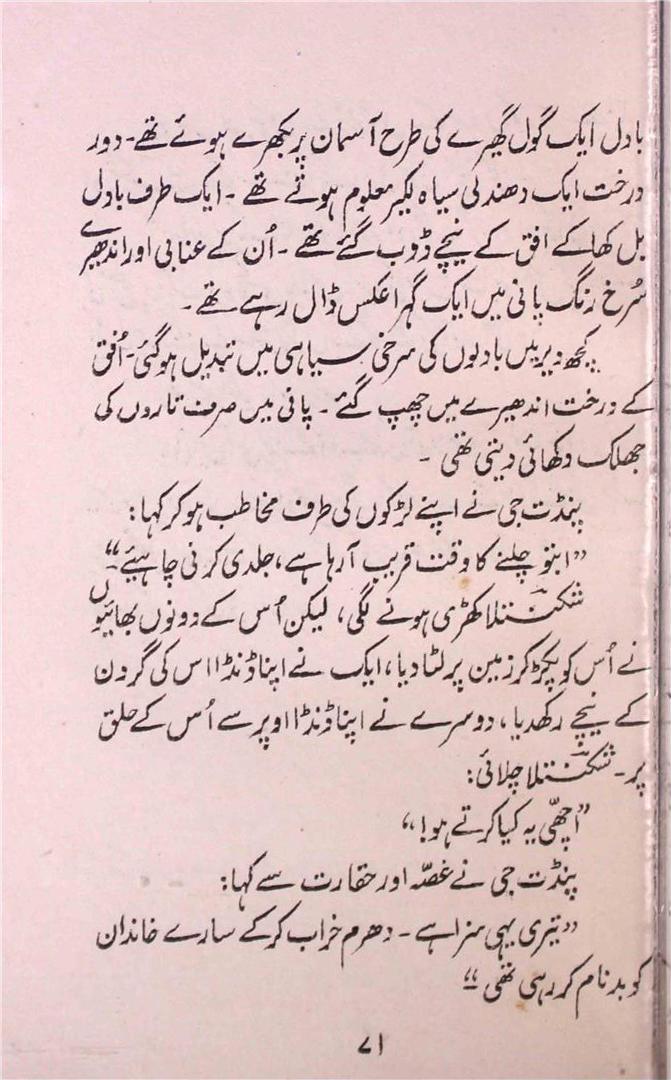 بادل ایک گول گھیرے کی طرح آسمان پر بکھرے ہوئے تھے۔ دور
درخت ایک دھندلی سیاہ لکیر معلوم ہوتے تھے۔ ایک طرف بادل
بل کھا کے افق کے نیچے ڈوب گئے تھے۔ اُن کے عنابی اور اندھیرے
سُرخ رنگ پانی میں ایک گہرا عکس ڈال رہے تھے۔
کچھ دیر میں بادلوں کی سرخی سیاہی میں تبدیل ہو گئی۔ اُفق
کے درخت اندھیرے میں چھپ گئے۔ پانی میں صرف تاروں کی
جھلک دکھائی دیتی تھی۔
پنڈت جی نے اپنے لڑکوں کی طرف مخاطب ہو کر کہا:
”اب تو چلنے کا وقت قریب آ رہا ہے، جلدی کرنی چاہیئے۔“
شکنتلا کھڑی ہونے لگی، لیکن اُس کے دونوں بھائیوں
نے اُس کو پکڑ کر زمین پر لٹا دیا، ایک نے اپنا ڈنڈا اس کی گردن
کے نیچے رکھدیا، دوسرے نے اپنا ڈنڈا اوپر سے اُس کے حلق
پر۔ شکنتلا چلائی:
”اچھّی یہ کیا کرتے ہو!“
پنڈت جی نے غصّہ اور حقارت سے کہا:
”تیری یہی سزا ہے۔ دھرم خراب کر کے سارے خاندان
کو بدنام کر رہی تھی۔“
۷۱